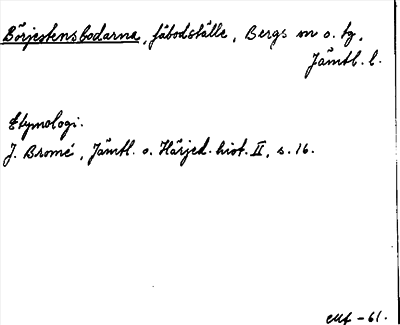 Börjestensbodarna, fäbodställe, Bergs sn o. tg,
Jämtl. l.
Etymologi.
J. Bromé, Jämtl. o. Härjed. hist. II, s. 16.
-61.